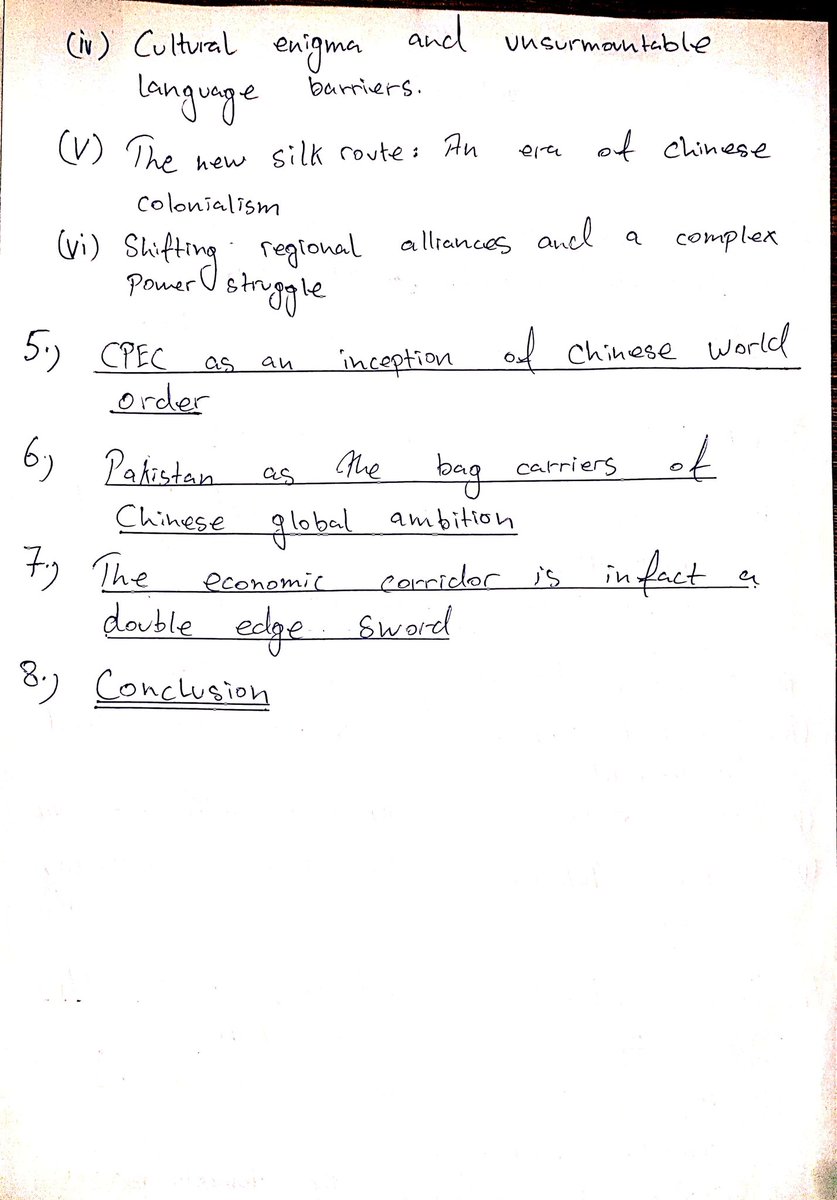 (iv) Cultural enigma and unsurmountable
language barriers.
(V) The new silk route: An era of Chinese
colonialism
(vi) Shifting regional alliances and a complex
Power struggle
5.) CPEC as an inception of Chinese world
order
6.) Pakistan as the bag carriers of
Chinese global ambition
7.) The economic corridor is infact a
double edge sword
8.) Conclusion